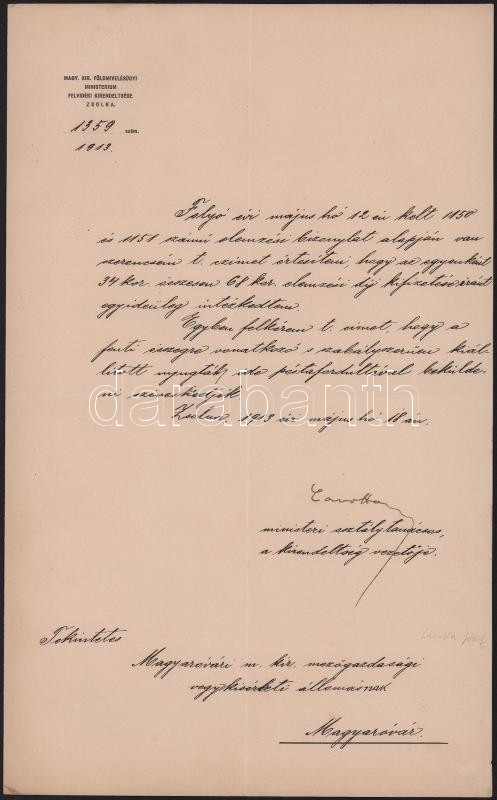 MAGY. KIR. FÖLDMIVELÉSÜGYI
MINISTERIUM
FELVIDÉKI KIRENDELTSÉGE
ZSOLNA.
1359 szám.
1913.
Folyó évi május hó 12 én kelt 1150
és 1151 számú elemzési bizonylat alapján van
szerencsém t. czimet értesíteni, hogy az egyenként
34 kor. összesen 68 kor. elemzési díj kifizetése iránt
egyidejüleg intézkedtem.
Egyben felkérem t. címet, hogy a
fenti összegre vonatkozó s szabályszerüen kiál-
lított nyugtáját ide postafordultával bekülde-
ni sziveskedjék
Zsolna, 1913 évi május hó 18 án.
ministeri osztálytanácsos,
a kirendeltség vezetője.
Tekintetes
Magyaróvári m. kir. mezőgazdasági
vegykisérleti állomásnak
Magyaróvár.
darabanth